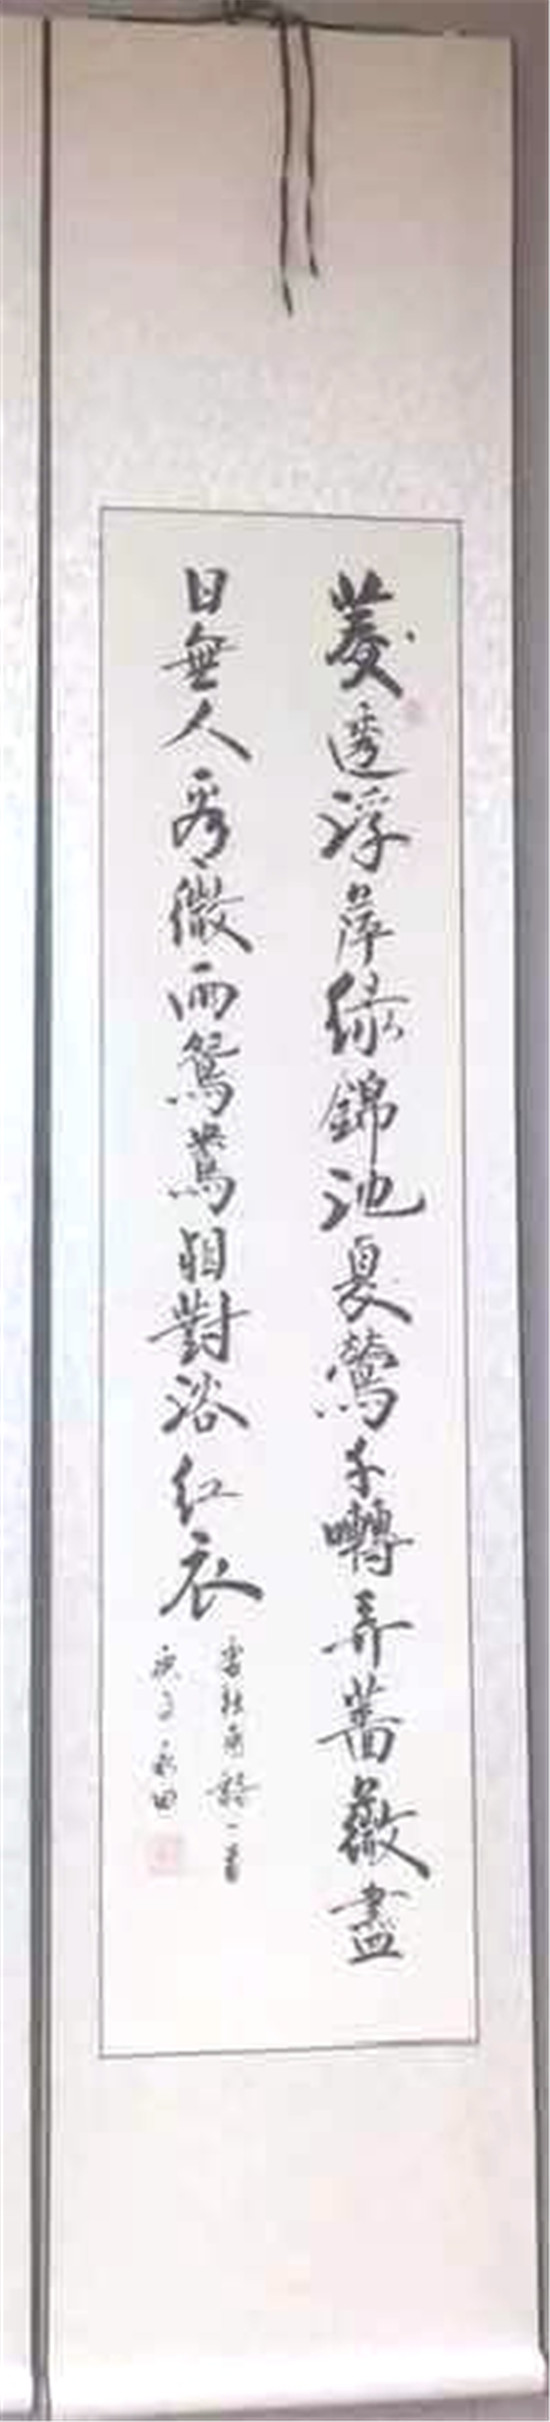 菱透浮萍綠錦池夏鶯千囀弄薔薇盡
日無人看微雨鴛鴦相對浴紅衣
書杜牧詩一首
庚子 永田